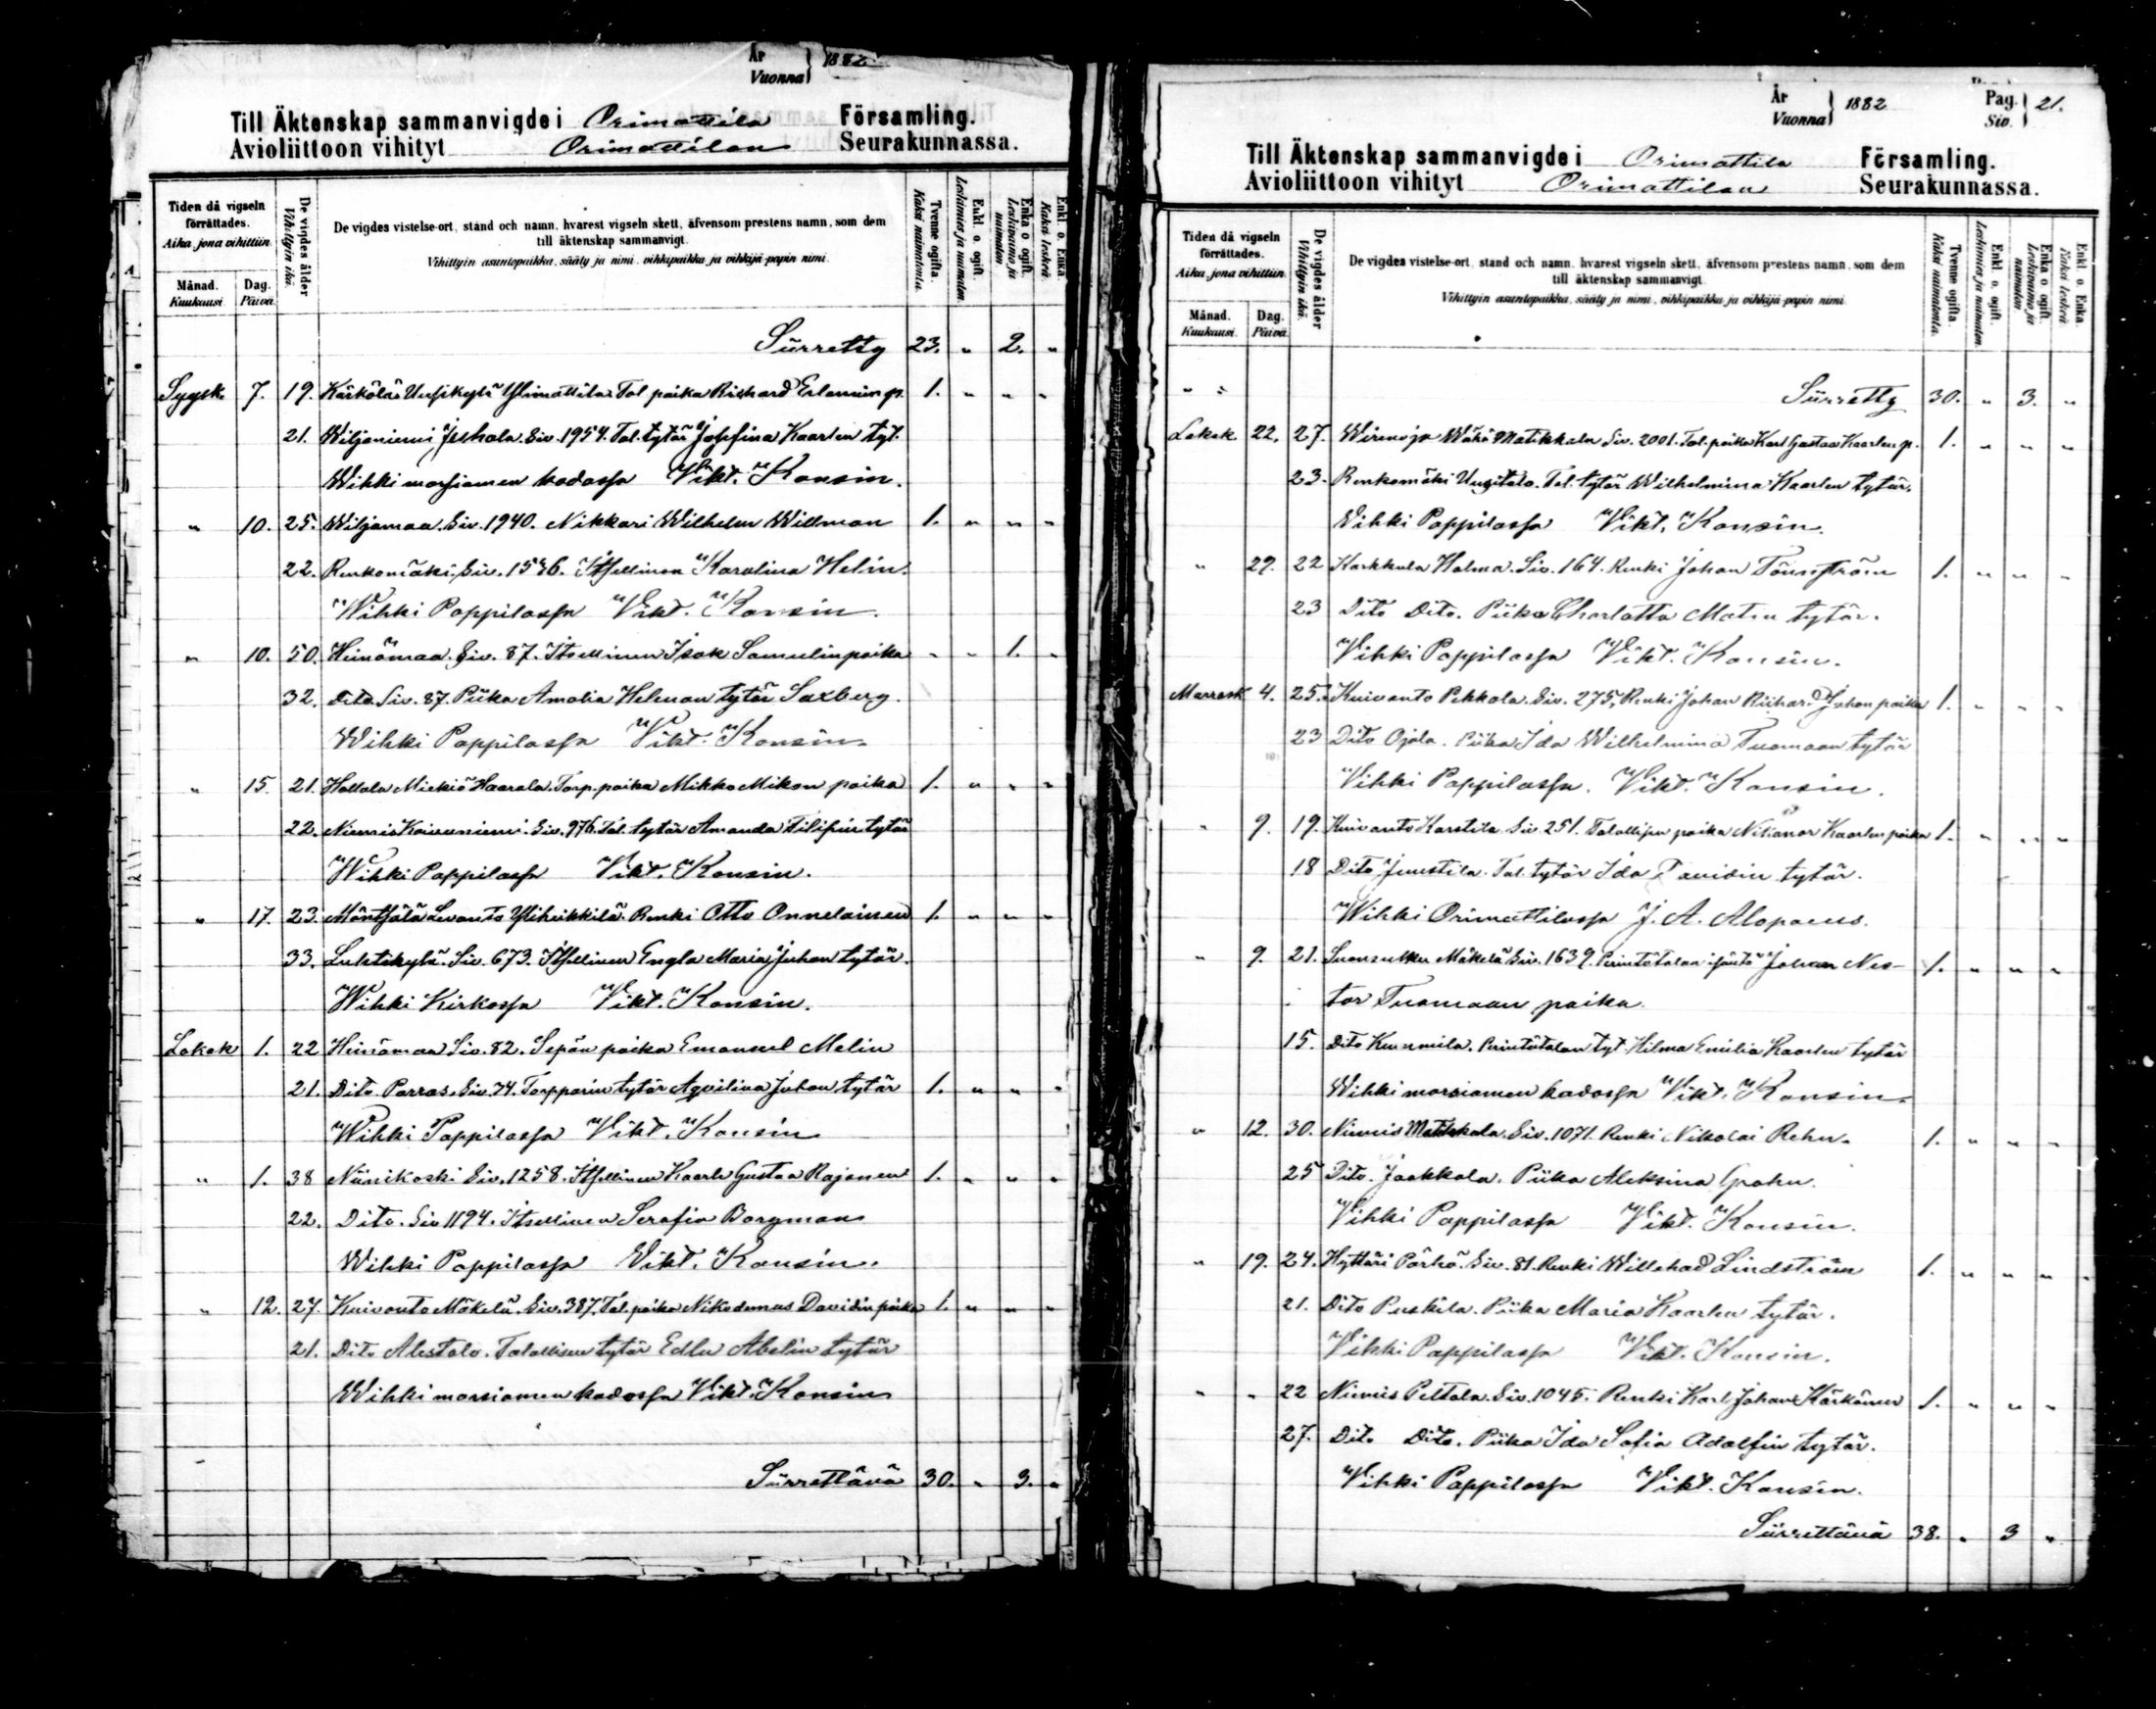 År
Vuonna 1882
Till Äktenskap sammanvigde i Orimattila Församling.
Avioliittoon vihityt Orimattilan Seurakunnassa.
Tiden då vigseln förrättades.
Aika, jona vihittiin.
Månad. Kuukausi.
Dag. Päivä.
De vigdes ålder
Vihittyin ikä.
De vigdes vistelse-ort, stånd och namn, hvarest vigseln skett, äfvensom prestens namn, som dem
till äktenskap sammanvigt.
Vihittyin asuntopaikka, sääty ja nimi, vihkipaikka ja vihkijä-papin nimi.
Tvenne ogifta.
Kaksi naimatonta.
Enkl. o. ogift.
Leskimies ja naimaton.
Enka o ogift.
Leskivaimo ja naimaton
Enkl. o. Enka
Kaksi leskeä
Siirretty 23. " 2. "
Syysk. 7. 19. Kärkölä Uusikylä Ylimattila Tal. poika Richard Erlannin p. 1. " " "
21. Wiljaniemi Jeshala. Siv. 1954. Tal. tytär Josefina Kaarlen tyt.
Wihki morsiamen kodossa Vikt. Konsin.
" 10. 25. Wiljamaa. Siv. 1940. Nikkari Wilhelm Willman 1. " " "
22. Renkomäki. Siv. 1536. Itsellinen Karolina Helin.
Wihki Pappilassa Vikt. Konsin.
" 10. 50. Heinämaa. Siv. 87. Itsellinen Isak Samulinpoika " " 1. "
32. Dito. Siv. 87. Piika Amalia Helman tytär Saxberg.
Wihki Pappilassa Vikt. Konsin.
" 15. 21. Hollola Miekiö Haarala. Torp. poika Mikko Mikon poika 1. " " "
22. Niemis Koivuniemi. Siv. 976. Tal. tytär Amanda Filipin tytär
Wihki Pappilassa Vikt. Konsin.
" 17. 23. Mäntsälä Levanto Yliheikkilä. Renki Otto Onnelainen 1. " " "
33. Luhtikylä. Siv. 673. Itsellinen Engla Maria Juhon tytär.
Wihki Kirkossa Vikt. Konsin.
Lokak 1. 22 Heinämaa Siv. 82. Sepän poika Emanuel Melin
21. Dito Porras. Siv. 74. Torpparin tytär Aqvilina Juhon tytär 1. " " "
Wihki Pappilassa Vikt. Konsin
" 1. 38 Niinikoski Siv. 1258. Itsellinen Kaarle Gustaa Rajanen 1. " " "
22. Dito. Siv 1194. Itsellinen Serafia Borgman
Wihki Pappilassa Vikt. Konsin.
" 12. 27. Kuivanto Mäkelä. Siv. 387. Tal. poika Nikodemus Davidin poika 1. " " "
21. Dito Alestalo. Talollisen tytär Edla Abelin tytär
Wihki morsiamen kodossa Vikt. Konsin
Siirrettävä 30. " 3. "
År
Vuonna 1882
Pag.
Siv. 21.
Till Äktenskap sammanvigde i Orimattila Församling.
Avioliittoon vihityt Orimattilan Seurakunnassa.
Tiden då vigseln förrättades.
Aika, jona vihittiin.
Månad. Kuukausi.
Dag. Päivä.
De vigdes ålder
Vihittyin ikä.
De vigdes vistelse-ort, stånd och namn, hvarest vigseln skett, äfvensom prestens namn, som dem
till äktenskap sammanvigt.
Vihittyin asuntopaikka, sääty ja nimi, vihkipaikka ja vihkijä-papin nimi.
Tvenne ogifta.
Kaksi naimatonta.
Enkl. o. ogift.
Leskimies ja naimaton.
Enka o ogift.
Leskivaimo ja naimaton
Enkl. o. Enka
Kaksi leskeä
" " Siirretty 30. " 3. "
Lokak 22. 27. Wirenoja Wähä Matikkala Siv. 2001. Tal. poika Karl Gustaa Kaarlen p. 1. " " "
23. Renkomäki Uusitalo. Tal. tytär Wilhelmina Kaarlen tytär.
Vihki Pappilassa Vikt. Konsin.
" 29. 22 Karkkula Holma. Siv. 164. Renki Johan Tönnström 1. " " "
23 Dito Dito. Piika Charlotta Matin tytär.
Vihki Pappilassa Vikt. Konsin.
Marrask 4. 25. Kuivanto Pekkola. Siv. 275. Renki Johan Richard Juhon poika 1. " " "
23 Dito Ojala. Piika Ida Wilhelmina Tuomaan tytär
Vihki Pappilassa. Vikt. Konsin.
" 9. 19. Kuivanto Karstila Siv. 251. Talollisen poika Nikanor Kaarlen poika 1. " " "
18 Dito Junstila. Tal. tytär Ida Tavidin tytär.
Wihki Orimattilassa J. A. Alopaeus.
" 9. 21. Mäkelä Siv. 1639. Perintötalon isäntä Johan Nes-
tor Tuomaan poika. 1. " " "
15. Dito Kuumila. Perintötalon tyt. Hilma Emilia Kaarlen tytär
Wihki morsiamen kodossa Vikt. Konsin.
" 12. 30. Niemis Matikkala. Siv. 1071. Renki Nikolai Rehn. 1. " " "
25 Dito. Jaakkola. Piika Aleksina Grahn.
Vihki Pappilassa Vikt. Konsin.
" 19. 24. Hyttäri Pärhä. Siv. 81. Renki Willehad Lindström 1. " " "
21. Dito Puskila. Piika Maria Kaarlen tytär.
Vihki Pappilassa Vikt. Konsin.
" " 22 Niemis Peltola. Siv. 1045. Renki Karl Johan Kärkönen 1. " " "
27. Dito Dito. Piika Ida Sofia Adolfin tytär.
Vihki Pappilassa Vikt. Konsin.
Siirrettävä 38. " 3 "